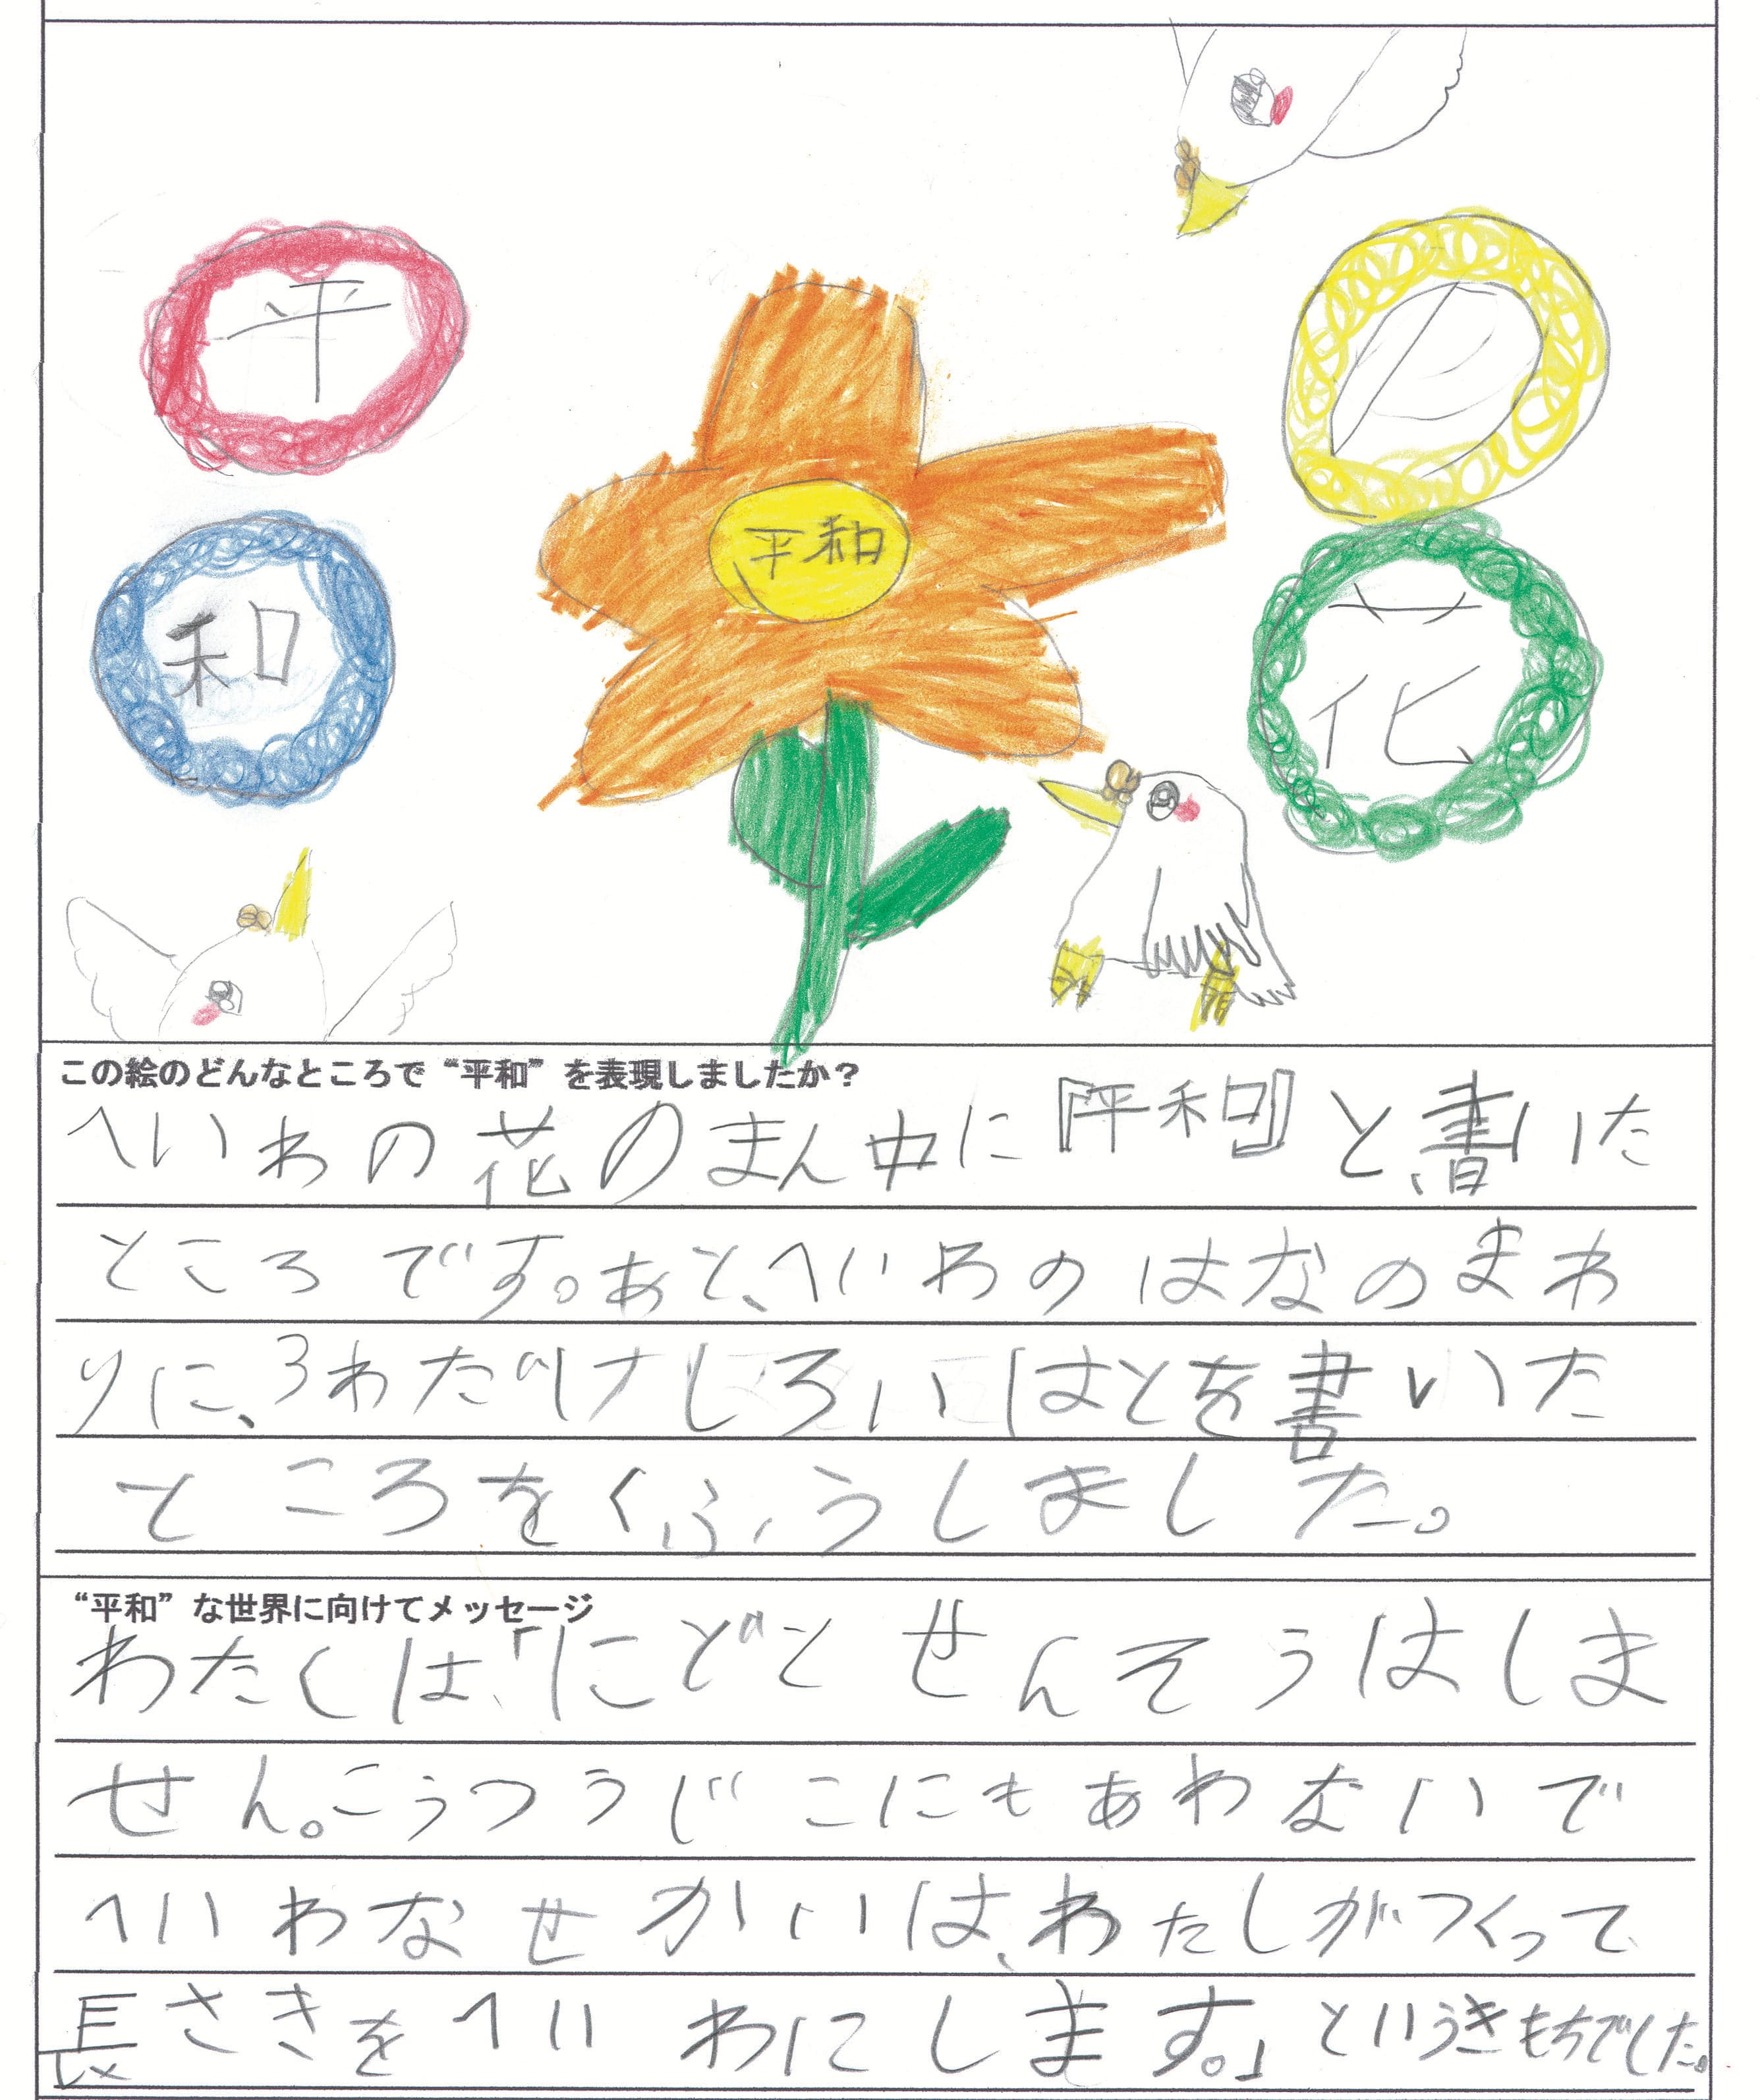 平
和
の
花
平和
この絵のどんなところで“平和”を表現しましたか？
へいわの花のまん中に『平和』と書いた
ところです。あと、へいわのはなのまわ
りに、3わだけしろいはとを書いた
ところをくふうしました。
“平和”な世界に向けてメッセージ
わたくは、「にどとせんそうはしま
せん。こうつうじこにもあわないで
へいわなせかいは、わたしがつくって
長さきをへいわにします。」というきもちでした。